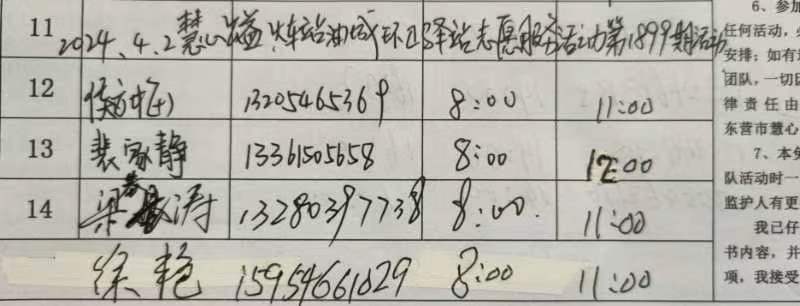 11 2024.4.2慧心公益火车站油城环卫驿站志愿服务活动第1899期活动
12 13205465369 8:00 11:00
13 裴家静 13361505658 8:00 12:00
14 梁春涛 13280397738 8:00. 11:00
徐艳 15954661029 8:00 11:00
6、参加
任何活动,
安排;如有
团队,一切
律责任由
东营市慧心
7、本
队活动时一
监护人有更
我已仔
书内容,并
项,我接受